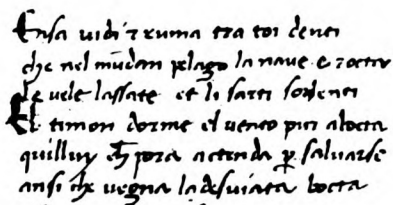 Ensa uidi z ruma tra toi denti
che nel mūdan pelago la naue e rotta
le uele lassate et li sarti
El timon dorme el uento piu alotta
quilluy ch pora actenda p saluarse
ansi ch uegna la desuiata botta